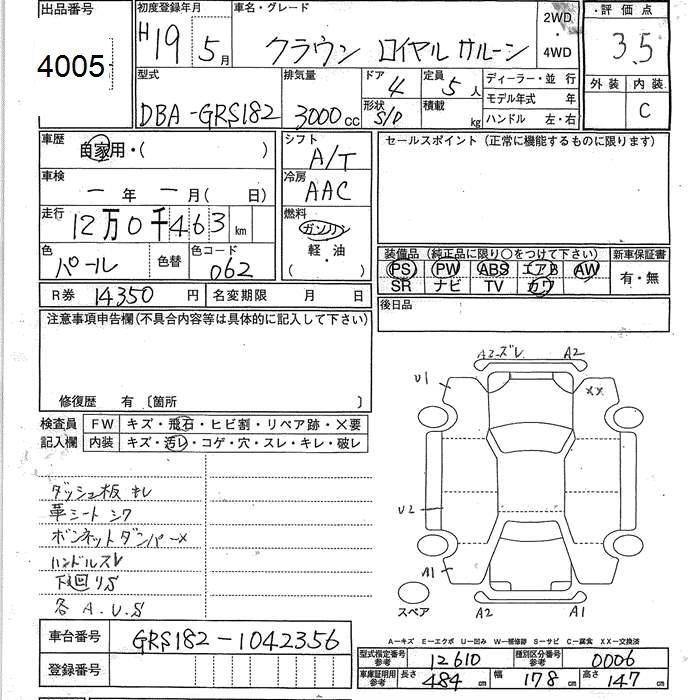 出品番号 初度登録年月 車名・グレード 2WD ・ 4WD 評価点
4005 H19 5月 クラウン ロイヤルサルーン 3.5
型式 排気量 ドア 4 定員 5人 ディーラー・並行 外装 内装
DBA-GRS182 3000cc 形状 S/D 積載 kg モデル年式 年 C
ハンドル 左・右
車歴 自家用・( ) シフト A/T セールスポイント (正常に機能するものに限ります)
車検 一年 一月( 日) 冷房 AAC
走行 12万0千463km 燃料 ガソリン
軽・油
( )
色 パール 色替 色コード 062
装備品 (純正品に限り○をつけて下さい) 新車保証書
PS PW ABS エアB AW 有・無
SR ナビ TV カワ
R券 14350円 名変期限 月 日 後日品
注意事項申告欄(不具合内容等は具体的に記入して下さい)
修復歴 有 〔箇所 〕
検査員 記入欄
FW キズ・飛石・ヒビ割・リペア跡・×要
内装 キズ・汚レ・コゲ・穴・スレ・キレ・破レ
ダッシュ板 キレ
革シート シワ
ボンネットダンパー×
ハンドルスレ
下廻りS
各 A.U.S
A2-ズレ A2
U1 XX
U2
A1
スペア A2 A1
車台番号 GRS182-1042356
登録番号
A-キズ E-エクボ U-凹み W-補修跡 S-サビ C-腐食 XX-交換済
型式指定番号 参考 12610 種別区分番号 参考 0006
車庫証明用 参考 長さ 484cm 幅 178cm 高さ 147cm